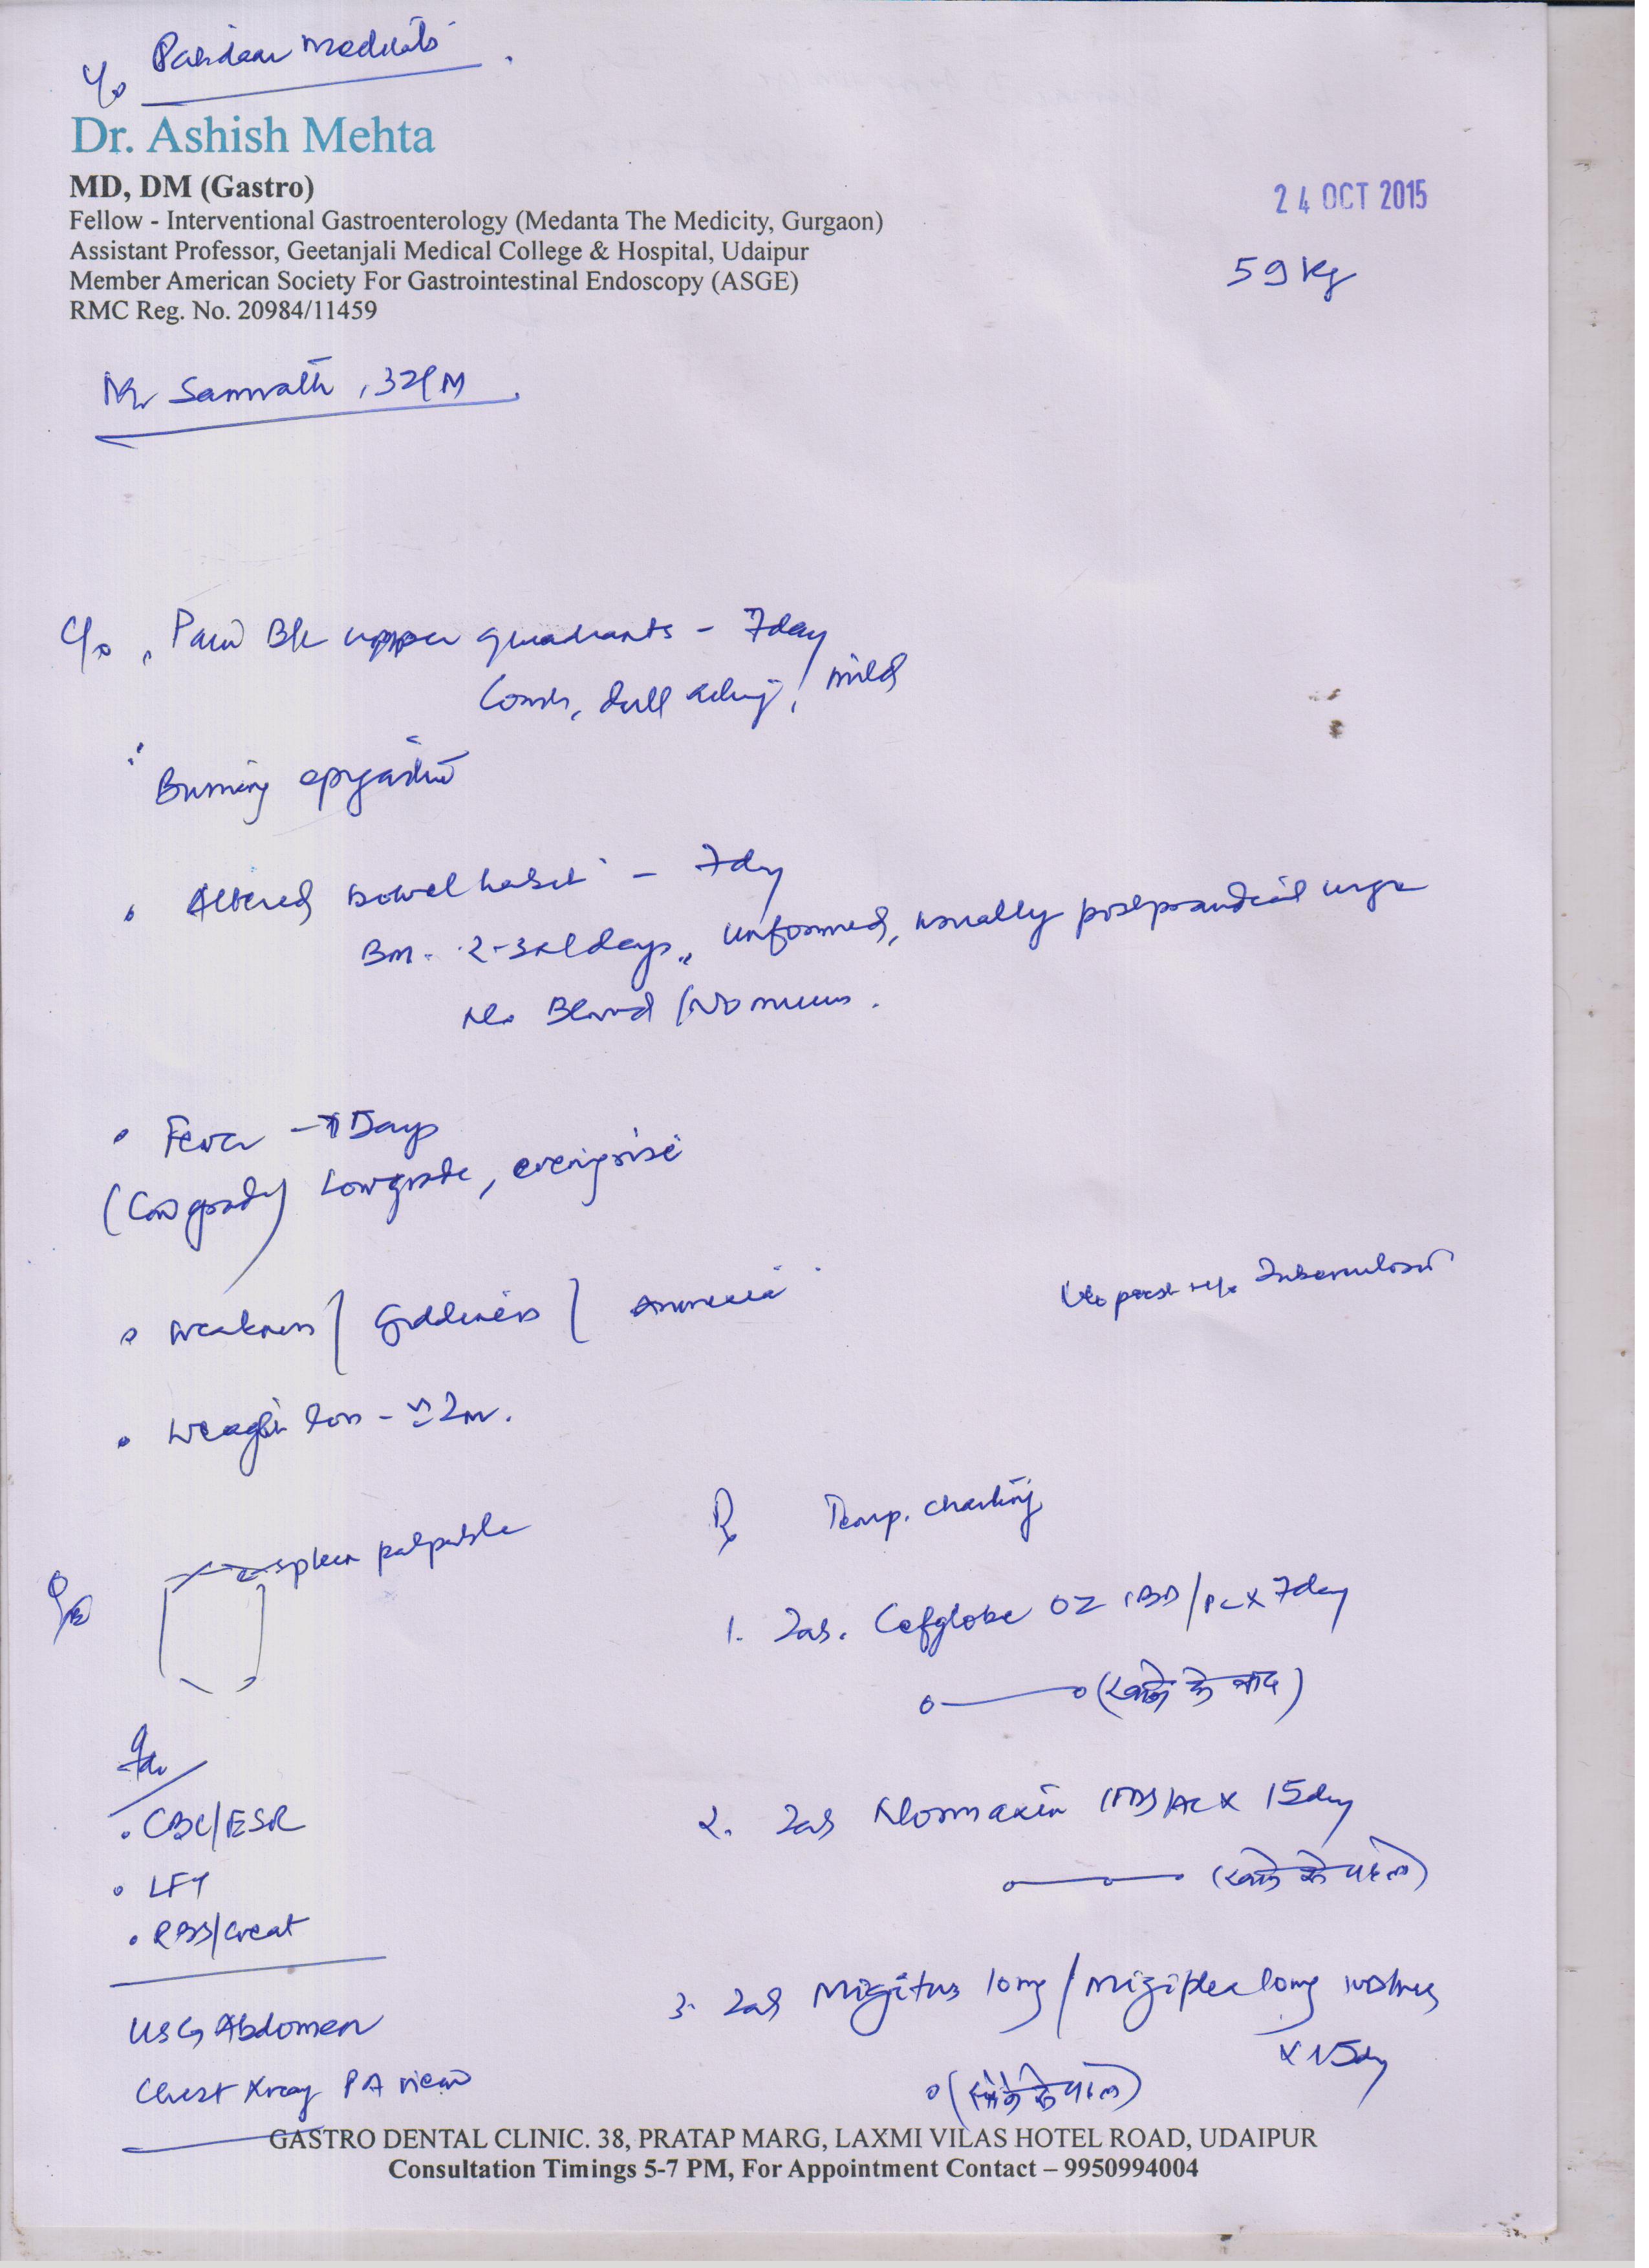 Dr. Ashish Mehta
MD, DM (Gastro)
Fellow - Interventional Gastroenterology (Medanta The Medicity, Gurgaon)
Assistant Professor, Geetanjali Medical College & Hospital, Udaipur
Member American Society For Gastrointestinal Endoscopy (ASGE)
RMC Reg. No. 20984/11459
24 OCT 2015
59 kg
Mr Samrath, 32/M
C/o Pain B/L upper quadrants - 7day
dull aching, mild
Burning
Altered bowel habit - 7dy
BM - 2-3 days, unformed, usually postprandial urge
No Blood / No mucus.
Fever - Days
Low grade, evening rise
Weakness / Giddiness /
Weight loss -
No past H/o Tuberculosis
spleen palpable
CBC/ESR
LFT
RBS/creat
USG Abdomen
Chest Xray PA view
Rx Temp. charting
1. Tab. Cefglobe OZ 1BD/PC x 7day
(खाने के बाद)
2. Tab Normaxin 1TDS/AC x 15day
(खाने के पहले)
3. Tab Migitus long / long
x 15dy
GASTRO DENTAL CLINIC. 38, PRATAP MARG, LAXMI VILAS HOTEL ROAD, UDAIPUR
Consultation Timings 5-7 PM, For Appointment Contact – 9950994004